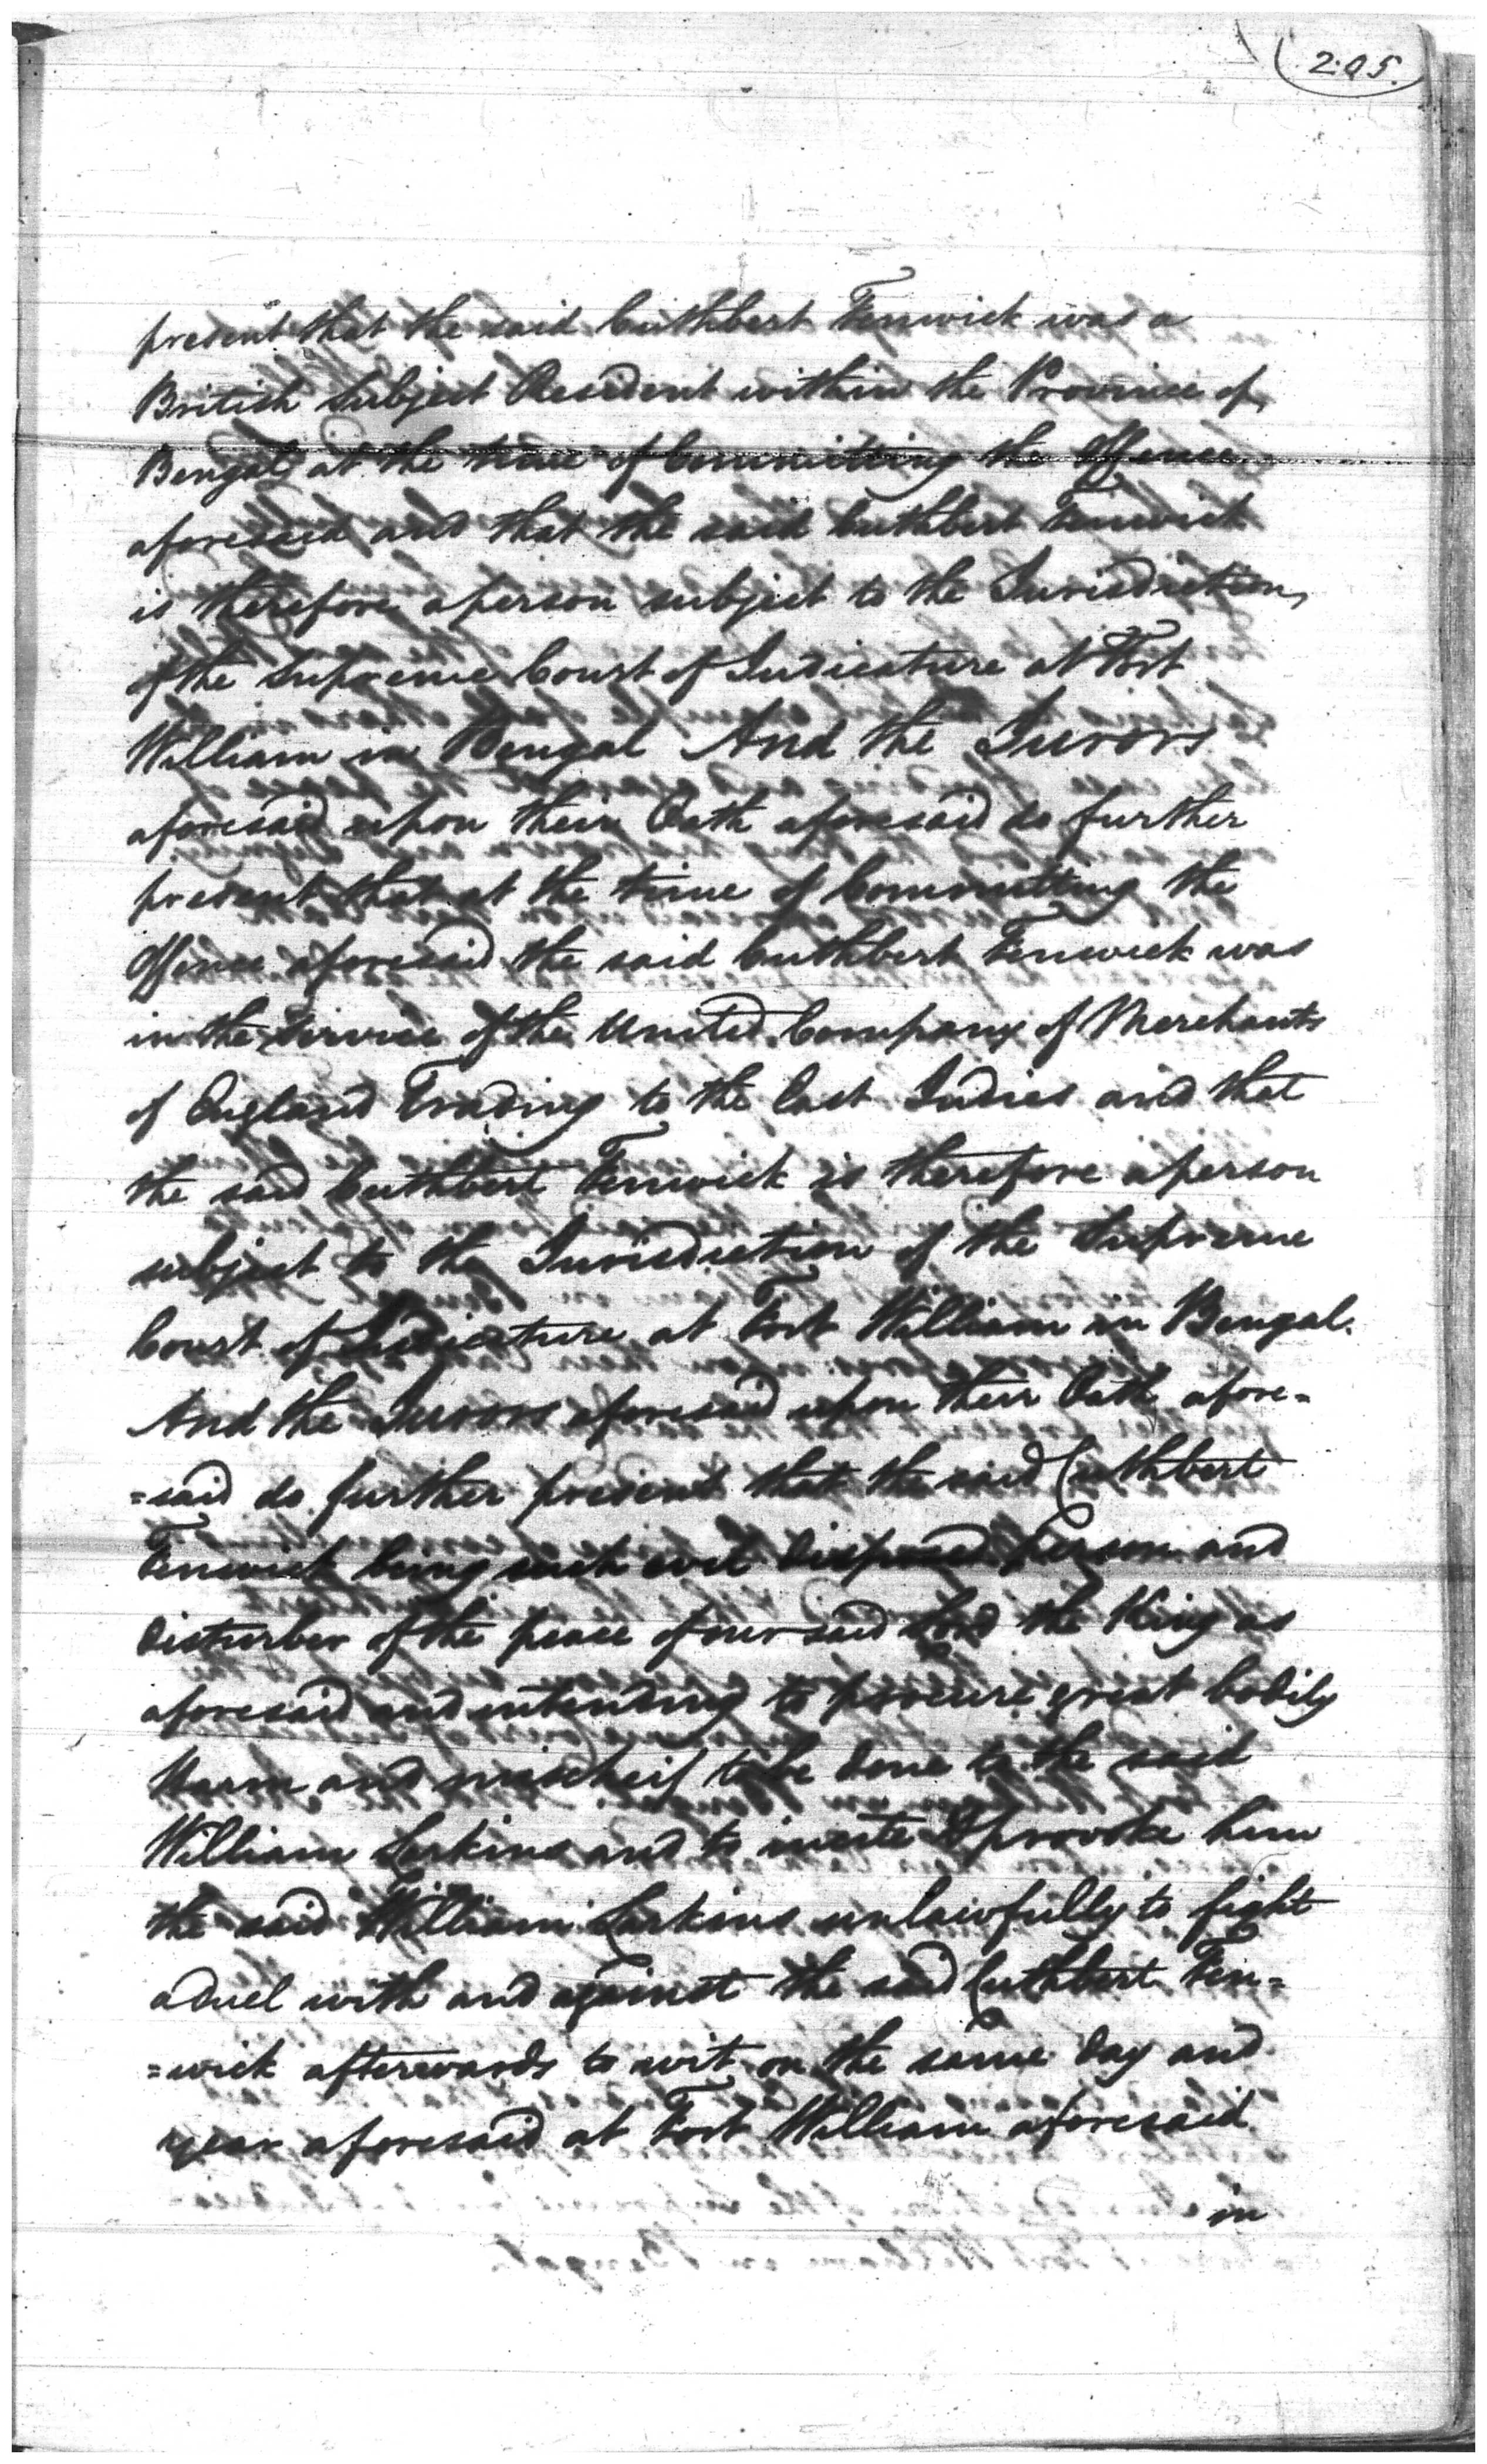 205.
present that the said Cuthbert Fenwick was a
British Subject Resident within the Province of
Bengal at the time of Committing the Offence
aforesaid and that the said Cuthbert Fenwick
is therefore a person subject to the Jurisdiction
of the Supreme Court of Judicature at Fort
William in Bengal And the Jurors
aforesaid upon their Oath aforesaid do further
present that at the time of Committing the
Offence aforesaid the said Cuthbert Fenwick was
in the Service of the United Company of Merchants
of England Trading to the East Indies and that
the said Cuthbert Fenwick is therefore a person
subject to the Jurisdiction of the Supreme
Court of Judicature at Fort William in Bengal.
And the Jurors aforesaid upon their Oath afore=
=said do further present that the said Cuthbert
Fenwick being such evil Disposed Person and
Disturber of the peace of our said Lord the King as
aforesaid and intending to procure great bodily
Harm and mischeif to be done to the said
William Larkins and to incite & provoke him
the said William Larkins unlawfully to fight
a Duel with and against the said Cuthbert Fen=
=wick afterwards to wit on the same Day and
year aforesaid at Fort William aforesaid
in